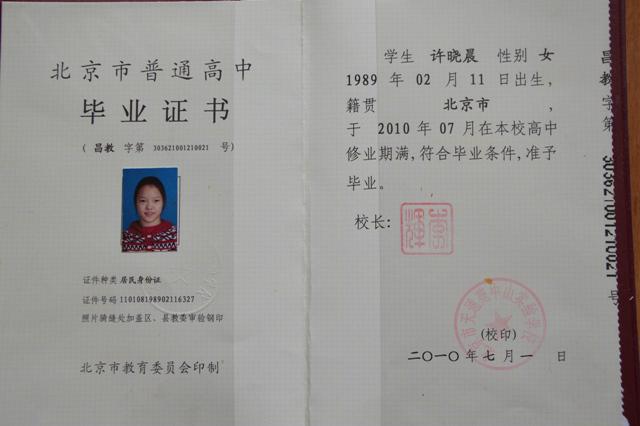 北京市普通高中
毕业证书
(昌教 字第 303621001210021 号)
证件种类 居民身份证
证件号码 110108198902116327
照片骑缝处加盖区、县教委审验钢印
北京市教育委员会印制
学生 许晓晨 性别 女
1989 年 02 月 11 日出生,
籍贯 北京市 ,
于 2010 年 07 月在本校高中
修业期满,符合毕业条件,准予
毕业。
校长:
(校印)
二〇一〇年七月一日
昌教 字第 303621001210021 号